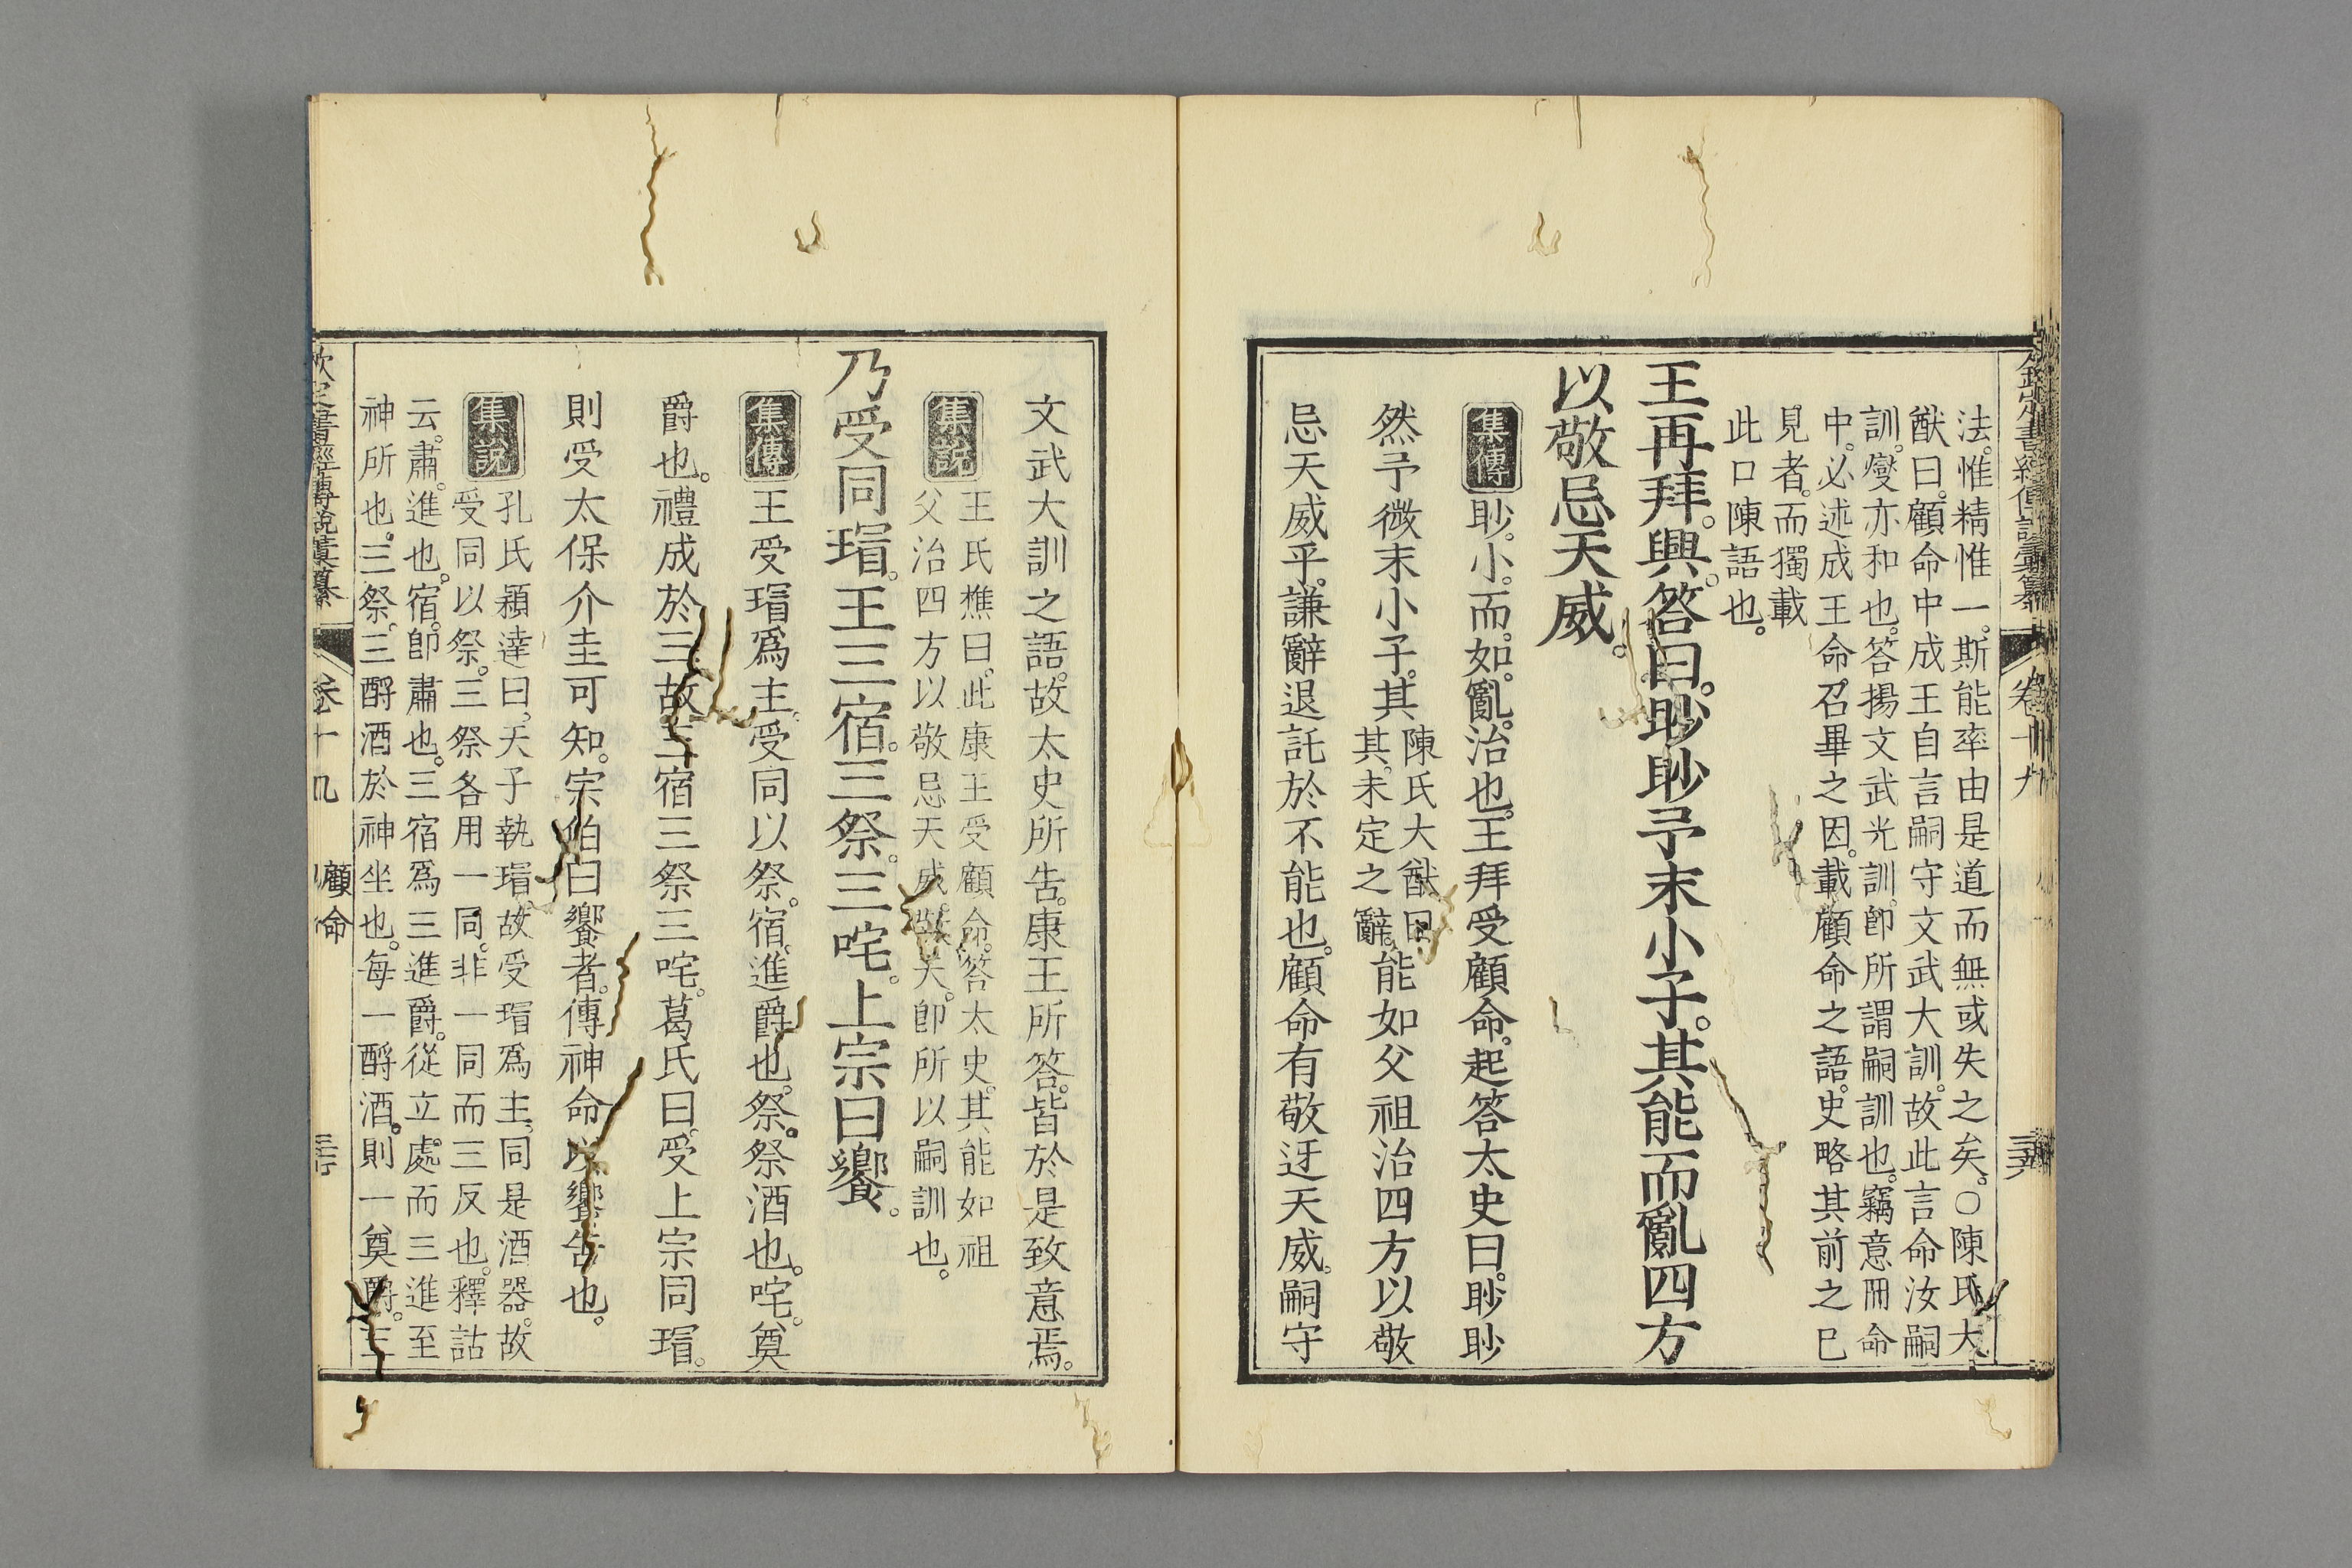 欽定書經傳說彙纂 卷十九
法。惟精惟一。斯能率由是道而無或失之矣。○陳氏大
猷曰。顧命中成王自言嗣守文武大訓。故此言命汝嗣
訓。燮亦和也。答揚文武光訓。卽所謂嗣訓也。竊意冊命
中。必述成王命。召畢之因。載顧命之語。史略其前之已
見者。而獨載
此口陳語也。
王再拜。興。答曰。眇眇予末小子。其能而亂四方
以敬忌天威。
集傳 眇。小。而。如。亂。治也。王拜受顧命。起答太史曰。眇眇
然予微末小子。其
陳氏大猷曰
其。未定之辭。
能如父祖治四方以敬
忌天威乎。謙辭退託於不能也。顧命有敬迓天威。嗣守
文武大訓之語。故太史所告。康王所答。皆於是致意焉。
集說 王氏樵曰。此康王受顧命。答太史。其能如祖
父治四方以敬忌天威。敬天。卽所以嗣訓也。
乃受同瑁。王三宿。三祭。三咤。上宗曰饗。
集傳 王受瑁爲主。受同以祭。宿。進爵也。祭。祭酒也。咤。奠
爵也。禮成於三。故三宿三祭三咤。葛氏曰。受上宗同瑁。
則受太保介圭可知。宗伯曰饗者。傳神命以饗告也。
集說 孔氏穎達曰。天子執瑁。故受瑁爲主。同是酒器。故
受同以祭。三祭各用一同。非一同而三反也。釋詁
云。肅。進也。宿。卽肅也。三宿爲三進爵。從立處而三進至
神所也。三祭。三酹酒於神坐也。每一酹酒。則一奠爵。三
欽定書經傳說彙纂 卷十九 顧命